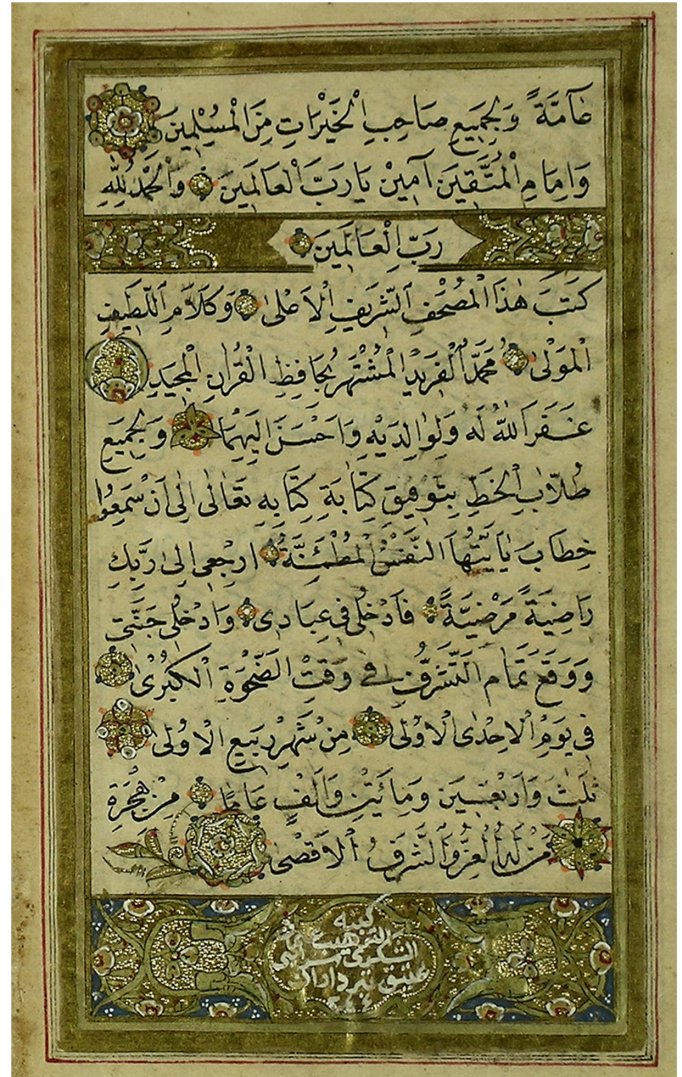 عَآمَّةً وَلِجَمِيعِ صَاحِبِ الْخَيْرَاتِ مِنَ الْمُسْلِمِينَ
وَاِمَامِ الْمُتَّقِينَ آمِينْ يَا رَبَّ الْعَالَمِينَ وَالْحَمْدُ لِلّٰهِ
رَبِّ الْعَالَمِينَ
كَتَبَ هٰذَا الْمُصْحَفِ الشَّرِيفِ الْاَعْلٰى وَكَلَامِ اللَّطِيفِ
الْمَوْلٰى مُحَمَّدُ الْفَرِيدُ الْمُشْتَهِرُ بِحَافِظِ الْقُرْاٰنِ الْمَجِيدِ
غَفَرَ اللّٰهُ لَهُ وَلِوَالِدَيْهِ وَاَحْسَنَ اِلَيْهِمَا وَلِجَمِيعِ
طُلَّابِ الْخَطِّ بِتَوْفِيقِ كِتَابَةِ كِتَابِهِ تَعَالٰى اِلٰى اَنْ سَمِعُوا
خِطَابَ يَا اَيَّتُهَا النَّفْسُ الْمُطْمَئِنَّةُ ارْجِعِى اِلٰى رَبِّكِ
رَاضِيَةً مَرْضِيَّةً فَادْخُلِى فِى عِبَادِى وَادْخُلِى جَنَّتِى
وَوَقَعَ تَمَامُ التَّشَرُّفِ فِى وَقْتِ الضَّحْوَةِ الْكُبْرٰى
فِى يَوْمِ الْاِحْدَى الْاُولٰى مِنْ شَهْرِ رَبِيعِ الْاُولٰى
ثَلٰثَ وَاَرْبَعِينَ وَمِائَتَيْنِ وَاَلْفٍ عَامًا مِنْ هِجْرَةِ
مَنْ لَهُ الْعِزُّ وَالشَّرَفُ الْاَقْصٰى